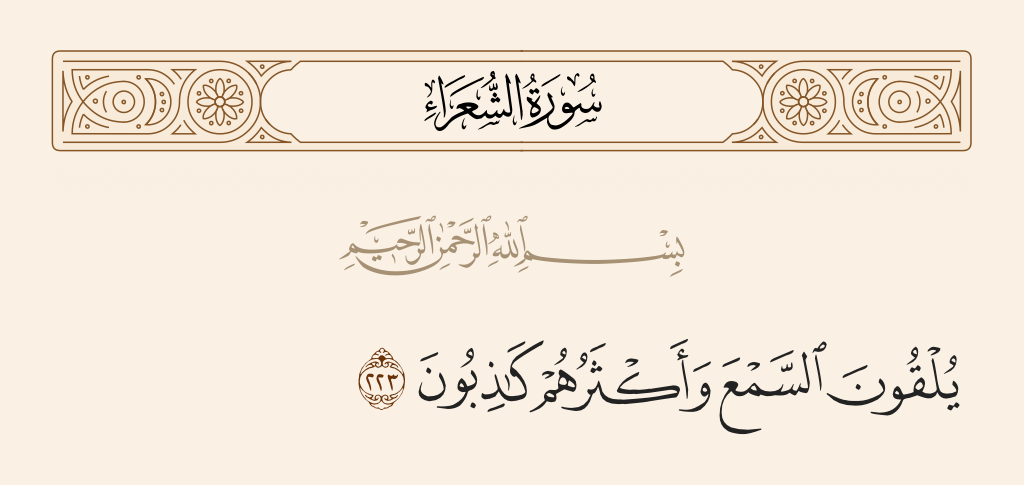 سُورَةُ الشُّعَرَاءِ
بِسْمِ ٱللَّهِ ٱلرَّحْمَٰنِ ٱلرَّحِيمِ
يُلْقُونَ ٱلسَّمْعَ وَأَكْثَرُهُمْ كَٰذِبُونَ ٢٢٣